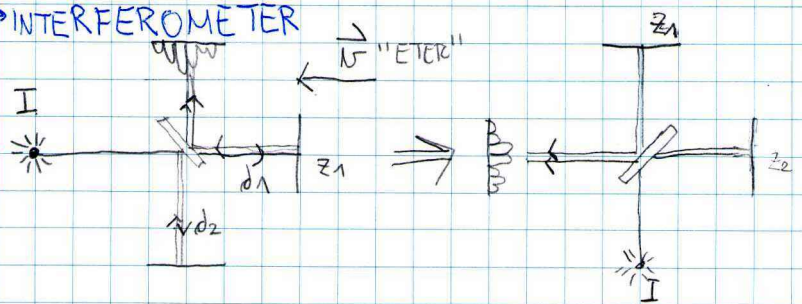 INTERFEROMETER
v "ETER"
I
d1
z1
d2
z1
z2
I